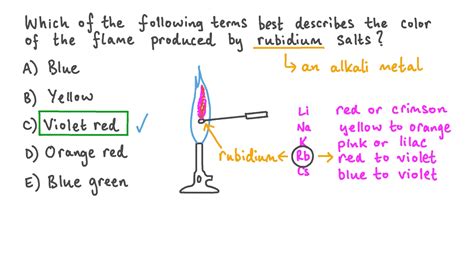 Which of the following terms best describes the color
of the flame produced by rubidium salts?
an alkali metal
A) Blue
B) Yellow
C) Violet red
D) Orange red
E) Blue green
rubidium
Li red or crimson
Na yellow to orange
K pink or lilac
Rb red to violet
Cs blue to violet